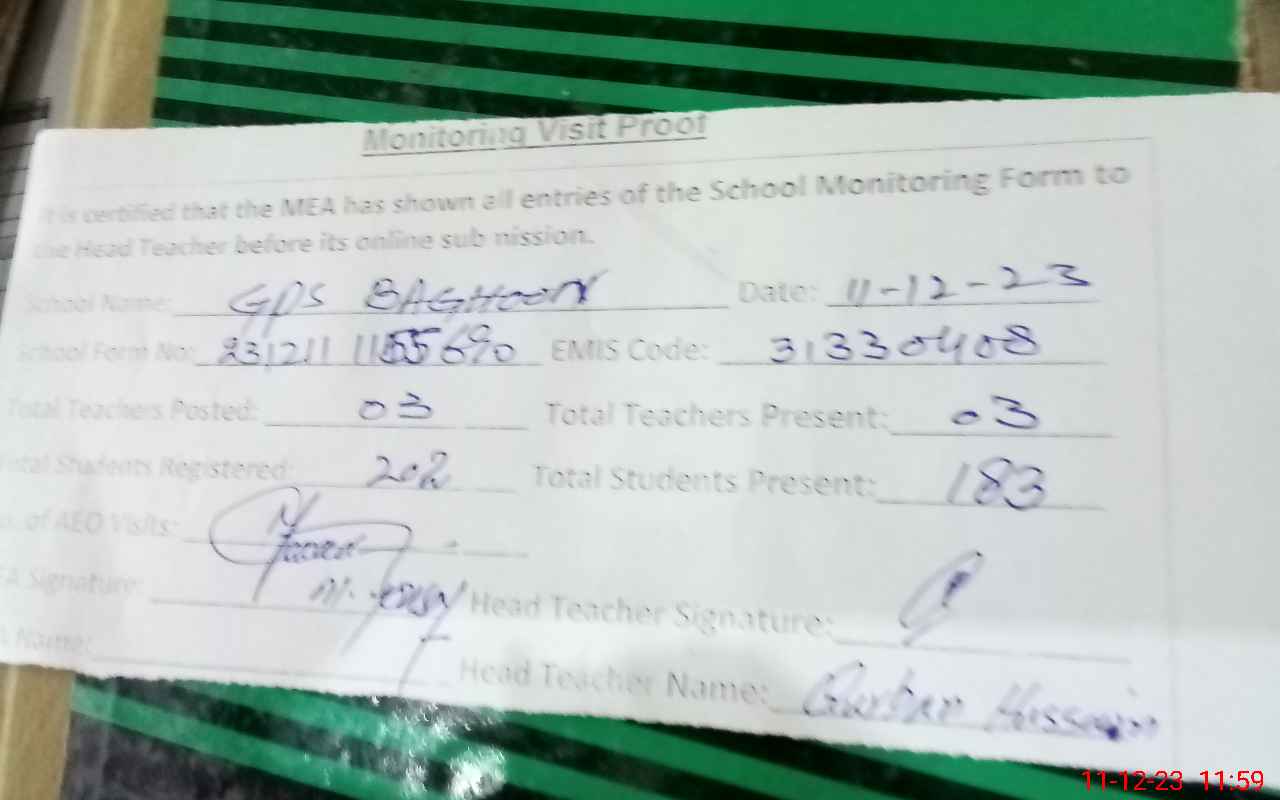 Monitoring Visit Proof
It is certified that the MEA has shown all entries of the School Monitoring Form to
the Head Teacher before its online submission.
School Name: GPS BAGHOOR Date: 11-12-23
School Form No: EMIS Code: 31330408
Total Teachers Posted: 03 Total Teachers Present: 03
Total Students Registered: 202 Total Students Present: 183
of AEO Visits:
Signature: Head Teacher Signature:
Name: Head Teacher Name: Hussain
11-12-23 11:59